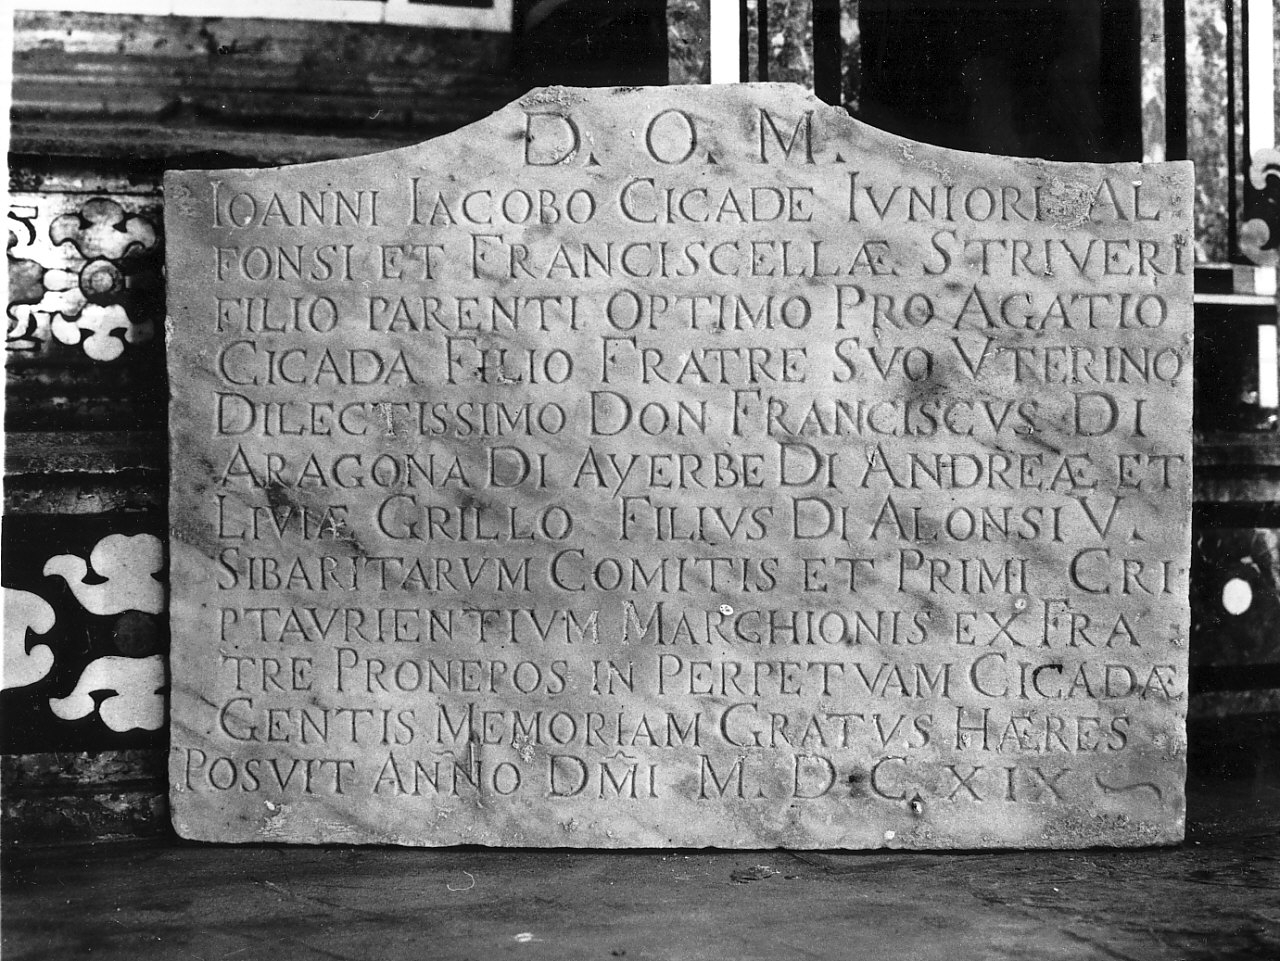 D. O. M.
IOANNI IACOBO CICADE IVNIORI AL
FONSI ET FRANCISCELLÆ STRIVERI
FILIO PARENTI OPTIMO PRO AGATIO
CICADA FILIO FRATRE SVO VTERINO
DILECTISSIMO DON FRANCISCVS DI
ARAGONA DI AYERBE DI ANDREÆ ET
LIVIÆ GRILLO FILIVS DI ALONSI V.
SIBARITARVM COMITIS ET PRIMI CRI
PTAVRIENTIVM MARCHIONIS EX FRA
TRE PRONEPOS IN PERPETVAM CICADÆ
GENTIS MEMORIAM GRATVS HÆRES
POSVIT AÑNO DM̃I M. D. C. XIX